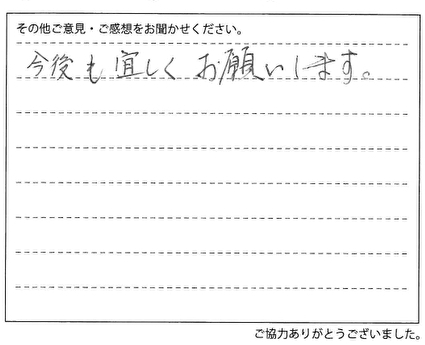 その他ご意見・ご感想をお聞かせください。
今後も宜しくお願いします。
ご協力ありがとうございました。